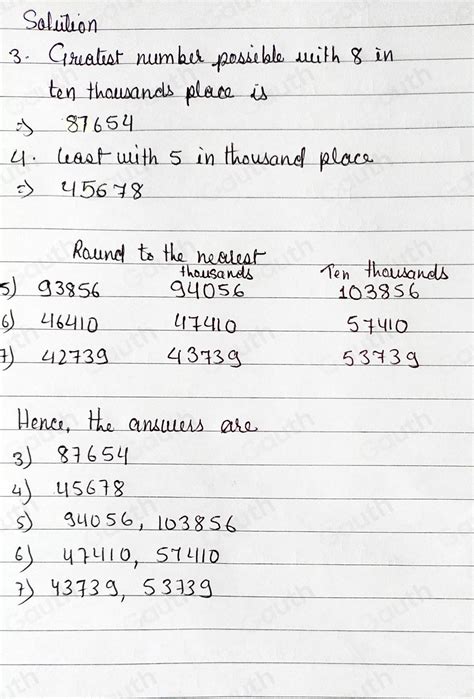 Solution
3. Greatest number possible with 8 in
ten thousands place is
⇒ 87654
4. least with 5 in thousand place
⇒ 45678
Round to the nearest
thousands Ten thousands
5) 93856 94056 103856
6) 46410 47410 57410
7) 42739 43739 53739
Hence, the answers are
3) 87654
4) 45678
5) 94056, 103856
6) 47410, 57410
7) 43739, 53739